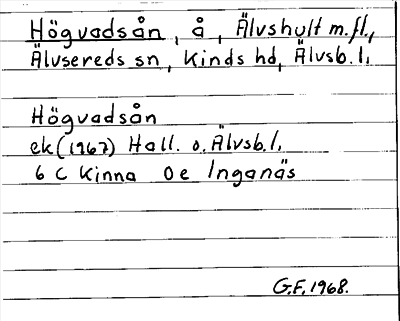 Högvadsån, å, Älvshult m.fl.,
Älvsereds sn, Kinds hd, Älvsb.l.
Högvadsån
ek (1967) Hall. o. Älvsb.l.
6 C Kinna 0 e Inganäs
G.F. 1968.